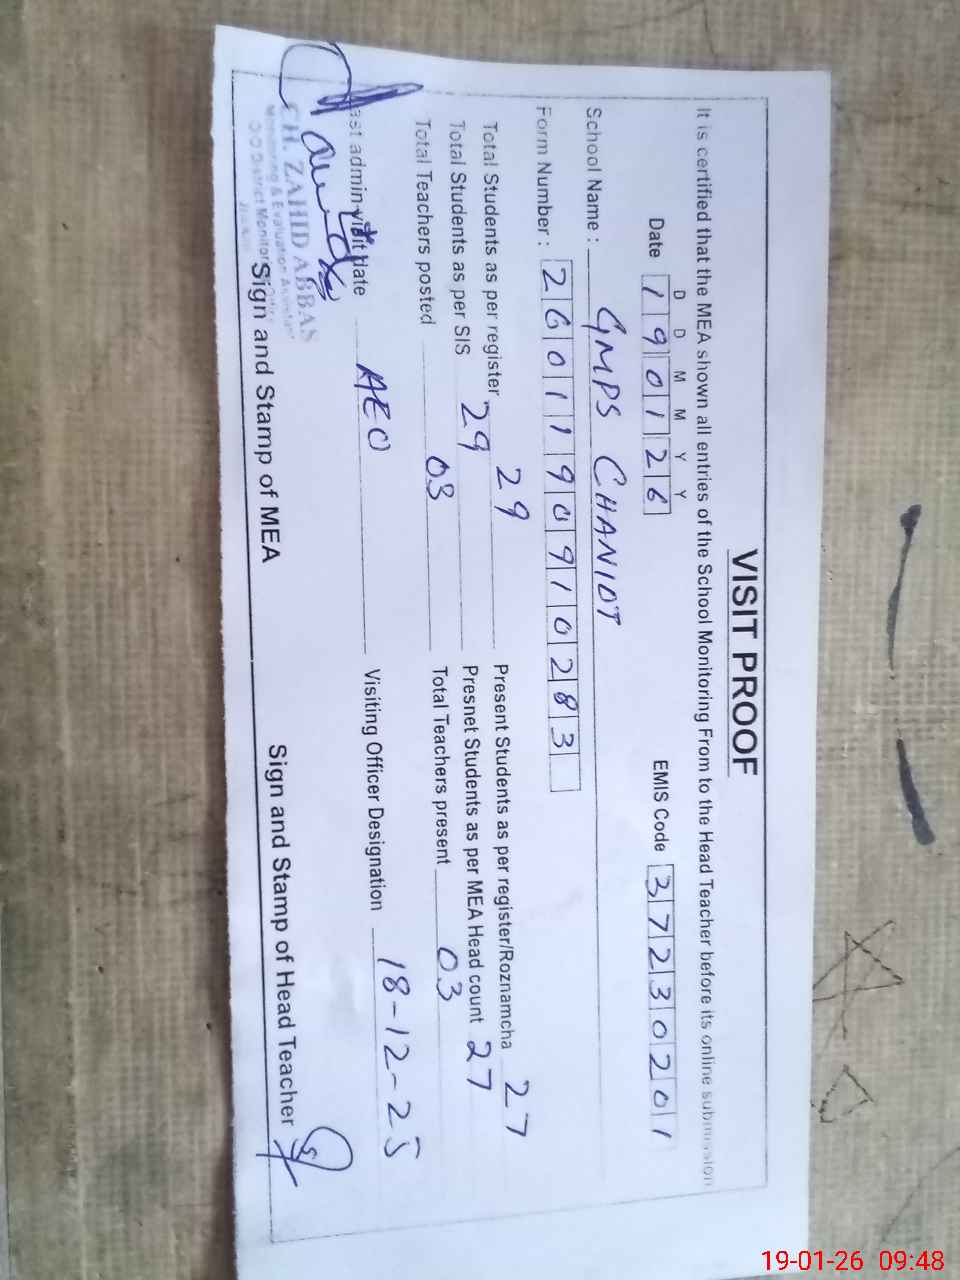 VISIT PROOF
It is certified that the MEA shown all entries of the School Monitoring From to the Head Teacher before its online submission
D D M M Y Y
Date 190126 EMIS Code 37230201
School Name : GMPS CHANIOT
Form Number : 2601190910283
Total Students as per register 29 Present Students as per register/Roznamcha 27
Total Students as per SIS 29 Presnet Students as per MEA Head count 27
Total Teachers posted 03 Total Teachers present 03
ast admin visit date AEO Visiting Officer Designation 18-12-25
CH. ZAHID ABBAS
Monitoring & Evaluation Assistant
O/O District Monitoring
Sign and Stamp of MEA Sign and Stamp of Head Teacher
19-01-26 09:48